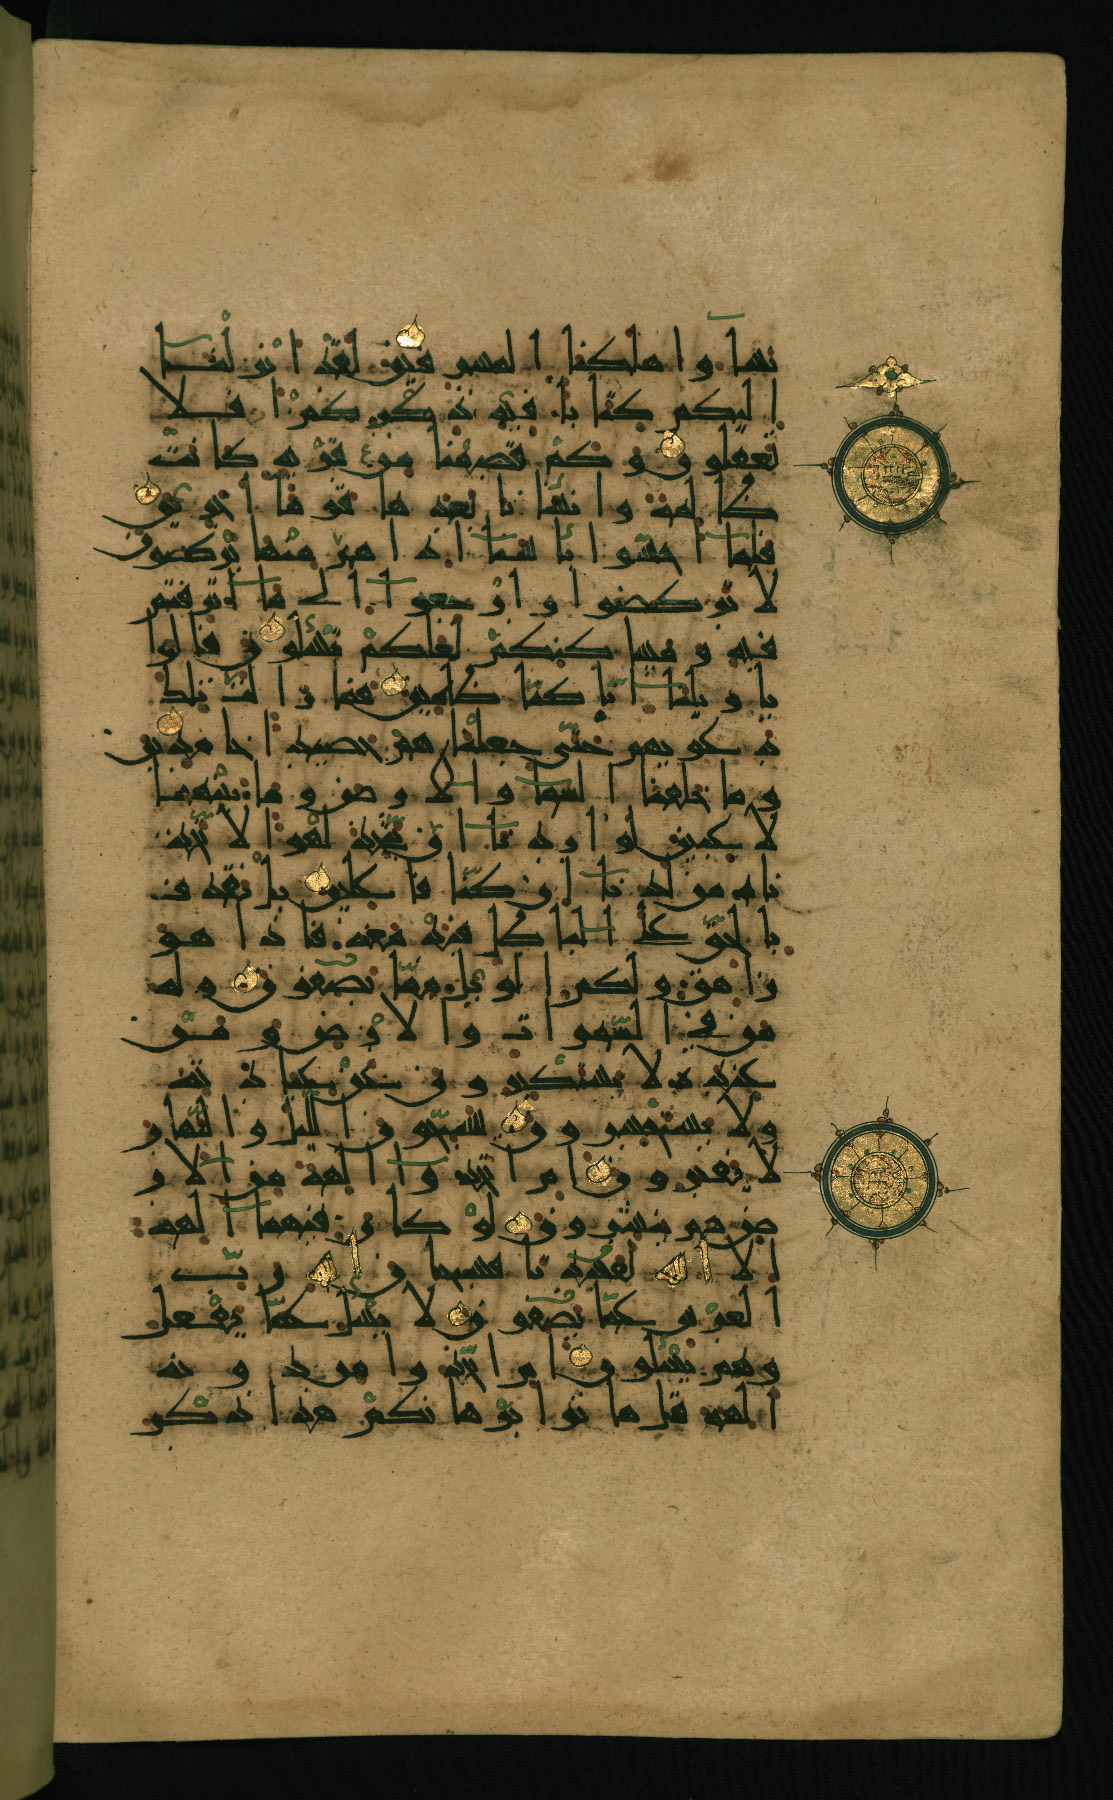 نشآء واهلكنا المسرفين لقد انزلنا
اليكم كتابا فيه ذكركم افلا
تعقلون وكم قصمنا من قرية كانت
ظالمة وانشأنا بعدها قوما اخرين
فلما احسوا بأسنا اذا هم منها يركضون
لا تركضوا وارجعوا الى ما اترفتم
فيه ومساكنكم لعلكم تسئلون قالوا
يا ويلنا انا كنا ظالمين فما زالت تلك
دعويهم حتى جعلناهم حصيدا خامدين
وما خلقنا السمآء والارض وما بينهما
لاعبين لو اردنا ان نتخذ لهوا لاتخذ
ناه من لدنا ان كنا فاعلين بل نقذف
بالحق على الباطل فيدمغه فاذا هو
زاهق ولكم الويل مما تصفون وله
من في السموات والارض ومن
عنده لا يستكبرون عن عبادته
ولا يستحسرون يسبحون الليل والنهار
لا يفترون ام اتخذوا الهة من الار
ض هم ينشرون لو كان فيهما الهة
الا الله لفسدتا فسبحان الله رب
العرش عما يصفون لا يسئل عما يفعل
وهم يسئلون ام اتخذوا من دونه
الهة قل هاتوا برهانكم هذا ذكر